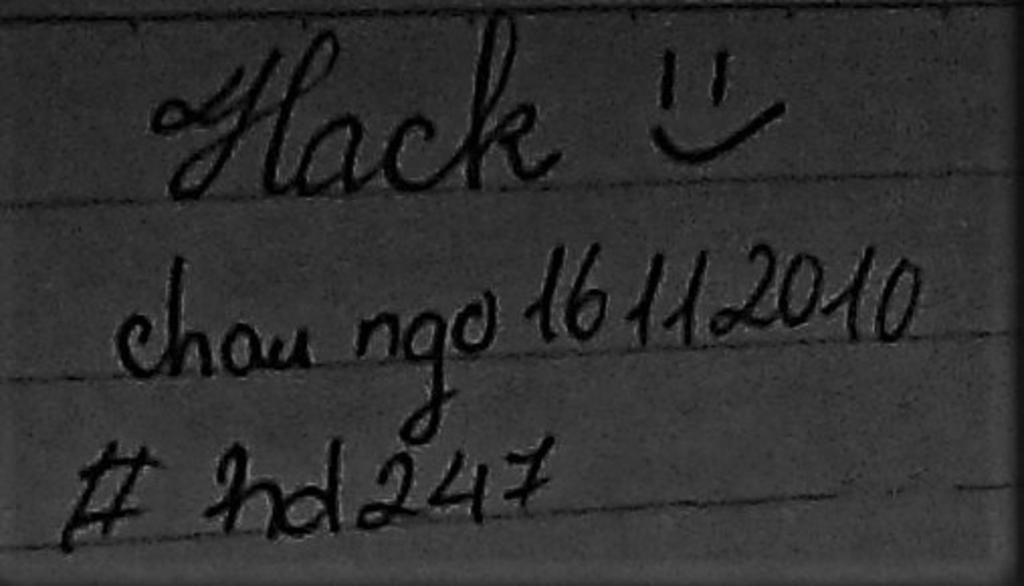 Hack =)
chau ngo 16112010
# hd247